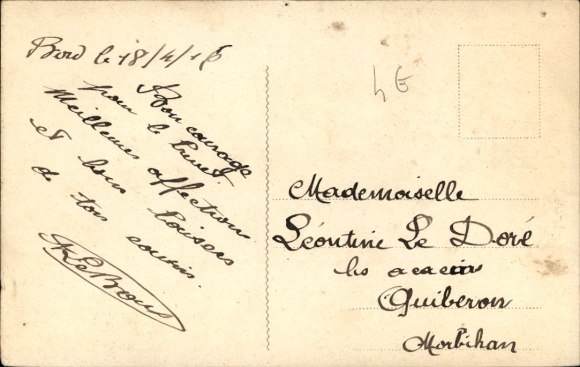 Bord le 18/4/16
Bon courage
pour le
Meilleures affections
et bons baisers
de ton cousin.
Le
4E
Mademoiselle
Léontine Le Doré
les acacias
Quiberon
Morbihan